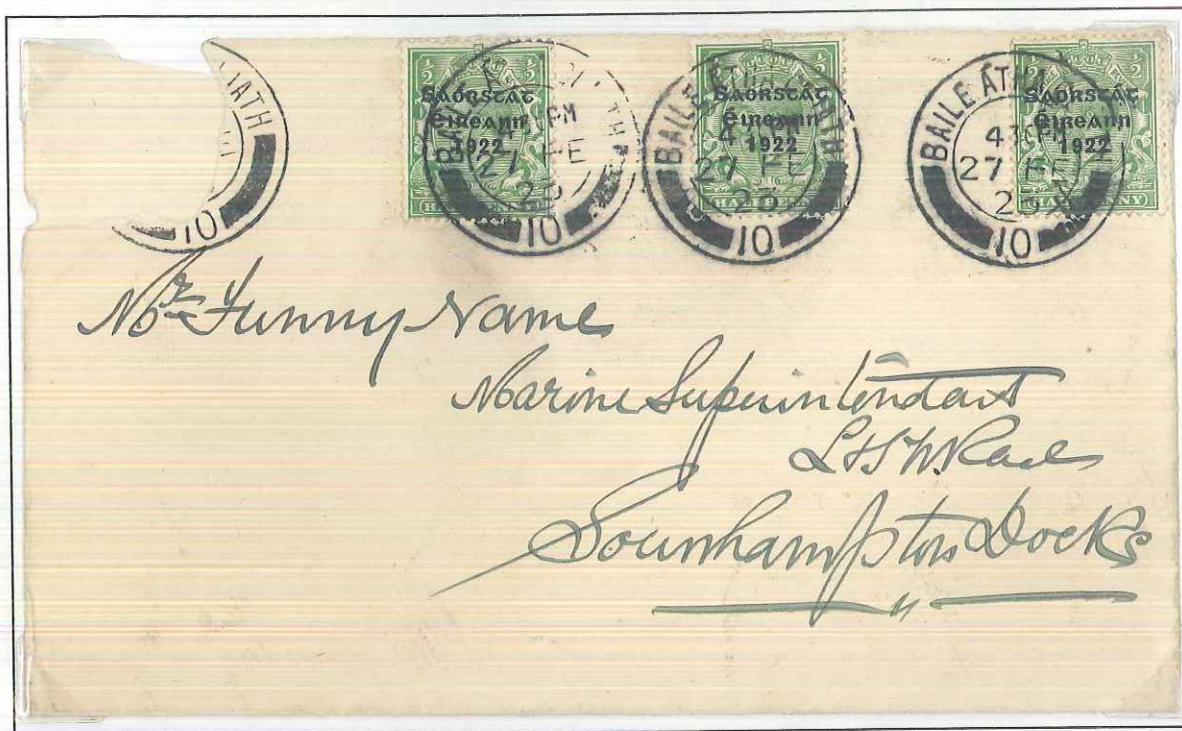 IATH
10
Saorstát
Éireann
1922
BAILE ÁTHA CLIATH
4 30 PM
27 FE
23
10
Saorstát
Éireann
1922
HALFPENNY
BAILE ÁTHA CLIATH
4 30 PM
27 FE
23
10
Saorstát
Éireann
1922
HALFPENNY
BAILE ÁTHA
4 30 PM
27 FE
23
10
Mr Funny Name
Marine Superintendant
L & S W. Rail
Southampton Docks